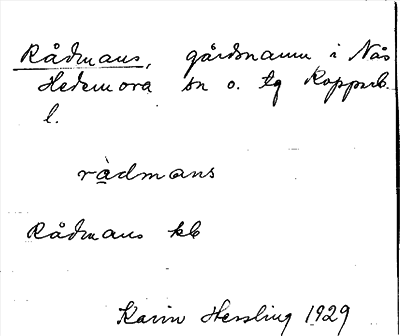 Rådmans, gårdsnamn i Nås
Hedemora sn o. tg Kopparb.
l.
rådmans
Rådmans kb
Karin Hessling 1929